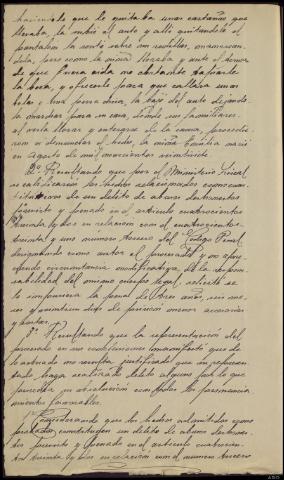 haciendo que le quitaba unas castañas que
llevaba, la subió al auto y allí quitándole el
pantalón la sentó sobre sus rodillas,
dola, pero como la niña lloraba y ante el temor
de que fuera oida no obstante taparle
la boca, y ofrecerle para que callara unas
botas y una perra chica, la bajó del auto dejando
la marchar para su casa, donde sus familiares
al verla llorar y enterarse de la causa, procedie
ron a denunciar el hecho, la niña
en Agosto de mil novecientos veintisiete
2º Resultando que por el Ministerio Fiscal
se calificaron los hechos relacionados como cons
titutivos de un delito de abusos deshonestos
previsto y penado en el artículo cuatrocientos
treinta y dos en relación con el cuatrocientos
treinta y uno número tercero del Código Penal
designando como autor al procesado y no apre
ciando circunstancia modificativa de la respon
sabilidad del mismo cuerpo legal, solicitó se
le impusiera la pena de tres años, seis me
ses y veintiun días de prisión menor accesorias
y costas.
3º Resultando que la representación del
procesado en sus conclusiones manifestó que de
lo actuado no resulta justificado que su represen
tado, haya realizado delito alguno por lo que
procedía su absolución con todos los pronuncia
mientos favorables.
1º Considerando que los hechos admitidos como
probados, constituyen un delito de abusos deshones
tos previsto y penado en el artículo cuatrocien
tos treinta y dos en relación con el número tercero